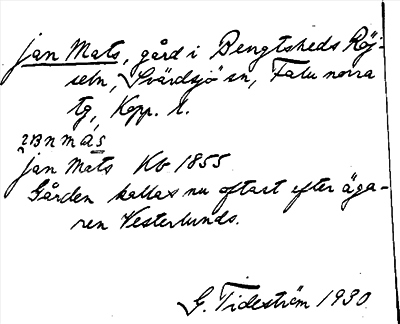 Jan Mats, gård i Bengtsheds Röj-
seln, Svärdsjö sn, Falu norra
tg, Kopp. l.
Jan Mats Kb 1855
Gården kallas nu oftast efter äga-
ren Vesterlunds.
G. Tideström 1930